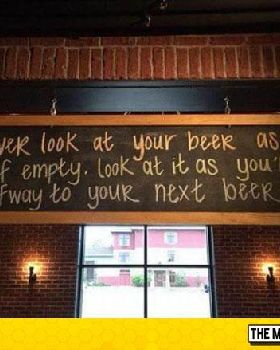 ver look at your beer as
f empty. look at it as you'
fway to your next beer
THE M